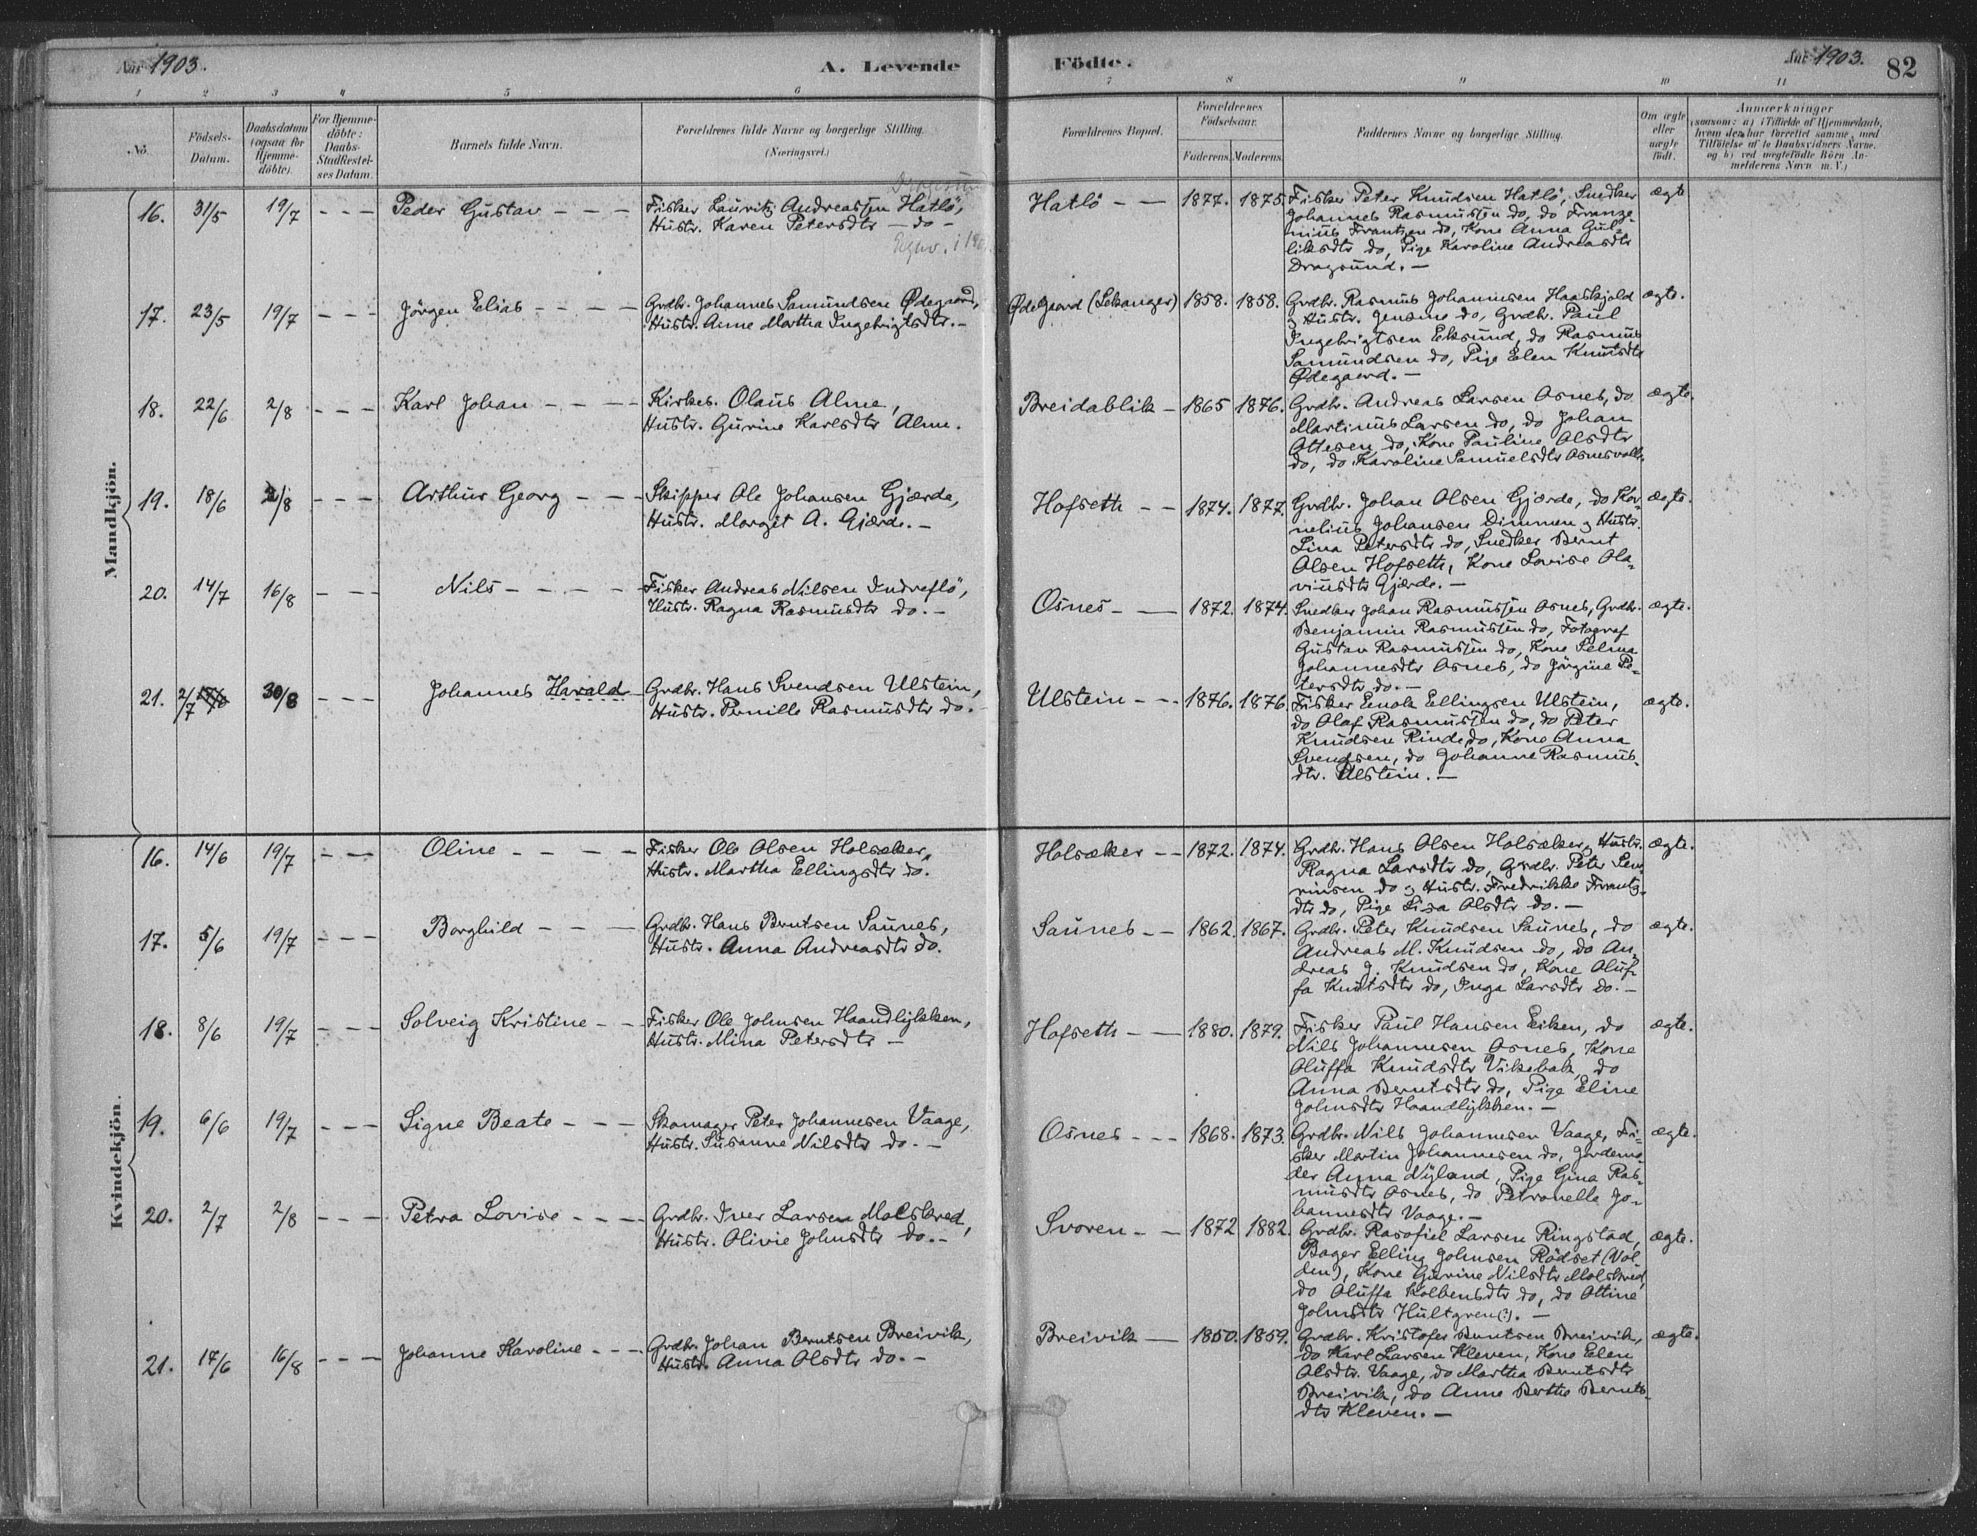 Aar 1903.
A. Levende Födte.
Aar 1903.
82
1 2 3 4 5 6 7 8 9 10 11
No.
Födsels-
Datum.
Daabsdatum
(ogsaa for
Hjemme-
döbte).
For Hjemme-
döbte:
Daabs-
Stadfestel-
ses Datum.
Barnets fulde Navn.
Forældrenes fulde Navne og borgerlige Stilling.
(Næringsvei.)
Forældrenes Bopæl.
Forældrenes
Födselsaar.
Faderens. Moderens.
Faddernes Navne og borgerlige Stilling.
Om ægte
eller
uægte
födt.
Anmærkninger
(saasom: a) i Tilfælde af Hjemmedaab,
hvem der har forrettet samme, med
Tilföielse af to Daabsvidners Navne,
og b) ved uægtefödte Börn An-
melderens Navn m. V.)
Mandkjön.
16. 31/5 19/7 - - - Peder Gustav - - -
Fisker Lauritz Andreassen Hatlö,
Hustr. Karen Petersdtr - do -
Hatlö - - 1877. 1875.
Fisker Peter Knudsen Hatlö, Snedker
Johannes Rasmussen do, do Franze-
nius Frantzen do, Kone Anna Gul-
liksdtr do, Pige Karoline Andreasdtr
Dragsund. -
ægte
17. 23/5 19/7 - - - Jörgen Elias - - - -
Grdbr. Johannes Samundsen Ødegaard,
Hustr. Anne Martha Ingebrigtsdtr. -
Ødegaard (Lekanger) 1858. 1858.
Grdbr. Rasmus Johannesen Haaskjold
og Hustr. Jensine do, Grdbr. Paul
Ingebrigtsen Eksund, do Rasmus
Samundsen do, Pige Elen Knutsdtr
Ødegaard. -
ægte.
18. 22/6 2/8 - - - Karl Johan - - - -
Kirkes. Olaus Alme,
Hustr. Gurine Karlsdtr Alme.
Breidablik - 1865 1876.
Grdbr. Andreas Larsen Osnes, do
Martinus Larsen do, do Johan
Ottesen do, Kone Pauline Olsdtr
do, do Karoline Samuelsdtr Osnesvolle.
ægte.
19. 18/6 2/8 - - - Arthur Georg - - -
Skipper Ole Johansen Gjærde,
Hustr. Margit A. Gjærde. -
Hofseth - - 1874. 1877.
Grdbr. Johan Olsen Gjærde, do Kor-
nelius Johansen Dimmen og Hustr.
Lina Petersdtr do, Snedker Bernt
Olsen Hofseth, Kone Lovise Ola-
viusdtr Gjærde. -
ægte.
20. 14/7 16/8 - - - Nils - - - -
Fisker Andreas Nilsen Indreflö,
Hustr. Ragna Rasmusdtr do. -
Osnes - - 1872. 1874.
Snedker Johan Rasmussen Osnes, Grdbr.
Benjamin Rasmussen do, Fotograf
Gustav Rasmussen do, Kone Selma
Johannesdtr Osnes, do Jörgine Pe-
tersdtr do. -
ægte.
21. 2/7 30/8 - - - Johannes Harald -
Grdbr. Hans Svendsen Ulstein,
Hustr. Pernille Rasmusdtr do.
Ulstein - - - 1876. 1876.
Fisker Enok Ellingsen Ulstein,
do Olaf Rasmussen do, do Peter
Knudsen Rinde do, Kone Anna
Svendsen, do Johanne Rasmus-
dtr. Ulstein. -
ægte.
Kvindekjön.
16. 14/6 19/7 - - - Oline - - - -
Fisker Ole Olsen Holsæker,
Hustr. Martha Ellingsdtr do.
Holsæker - - 1872. 1874.
Grdbr. Hans Olsen Holsæker og Hustr.
Ragna Larsdtr do, Grdbr. Peter Sev-
rinsen do og Hustr. Fredrikke Frantz-
dtr do, Pige Lisa Olsdtr do. -
ægte.
17. 5/6 19/7 - - - Borghild - - -
Grdbr. Hans Berntsen Saunes,
Hustr. Anna Andreasdtr do.
Saunes - - 1862. 1867.
Grdbr. Peter Knudsen Saunes, do
Andreas M. Knudsen do, do An-
dreas J. Knudsen do, Kone Oluf-
fa Knutsdtr do, Inga Larsdtr do. -
ægte.
18. 8/6 19/7 - - - Solveig Kristine - -
Fisker Ole Johnsen Haandlykken,
Hustr. Mina Petersdtr -
Hofseth - - 1880. 1879.
Fisker Paul Hansen Eiken, do
Nils Johannesen Osnes, Kone
Oluffa Knudsdtr Vikebak, do
Anna Berntsdtr do, Pige Eline
Johnsdtr Haandlykken. -
ægte.
19. 6/6 19/7 - - - Signe Beate - - -
Skomager Peter Johannesen Vaage,
Hustr. Susanne Nilsdtr do. -
Osnes - - - 1868. 1873.
Grdbr. Nils Johannesen Vaage, Fi-
sker Martin Johannesen do, Jordemo-
der Anna Nyland, Pige Gina Ras-
musdtr Osnes, do Petronelle Jo-
hannesdtr Vaage. -
ægte.
20. 2/7 2/8 - - - Petra Lovise - - -
Grdbr. Iver Larsen Molsbred,
Hustr. Olivie Johnsdtr do. -
Svoren - - 1872 1882.
Grdbr. Rasofiel Larsen Ringstad,
Bager Elling Johnsen Rödset (Vol-
den), Kone Gurine Nilsdtr Molsbred,
do Oluffa Kolbensdtr do, do Ottine
Johnsdtr Hultgren(?). -
ægte.
21. 17/6 16/8 - - - Johanne Karoline - - -
Grdbr. Johan Berntsen Breivik,
Hustr. Anna Olsdtr do. -
Breivik - 1850. 1859.
Grdbr. Kristofer Berntsen Breivik,
do Karl Larsen Kleven, Kone Elen
Olsdtr. Vaage, do Martha Berntsdtr
Breivik, do Anne Berthe Bernts-
dtr Kleven. -
ægte.